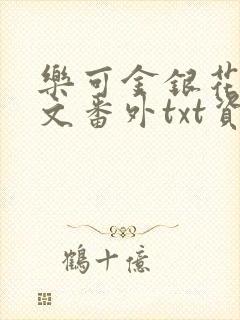 樂可金銀花
文番外txt資
鶴十億